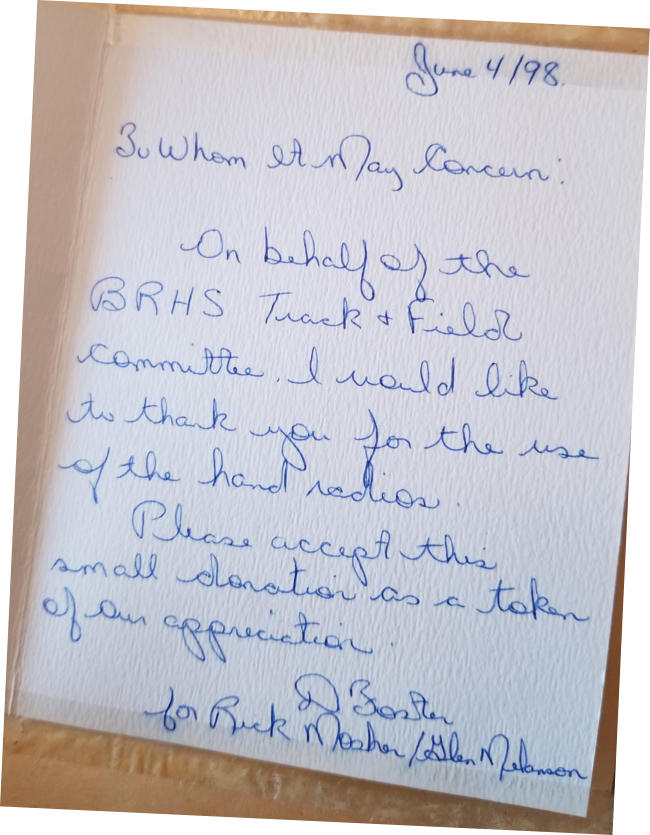 June 4/98.
To Whom It May Concern:
On behalf of the
BRHS Track & Field
committee, I would like
to thank you for the use
of the hand radios.
Please accept this
small donation as a token
of our appreciation.
D
for Rick Mosher/Glen Melanson